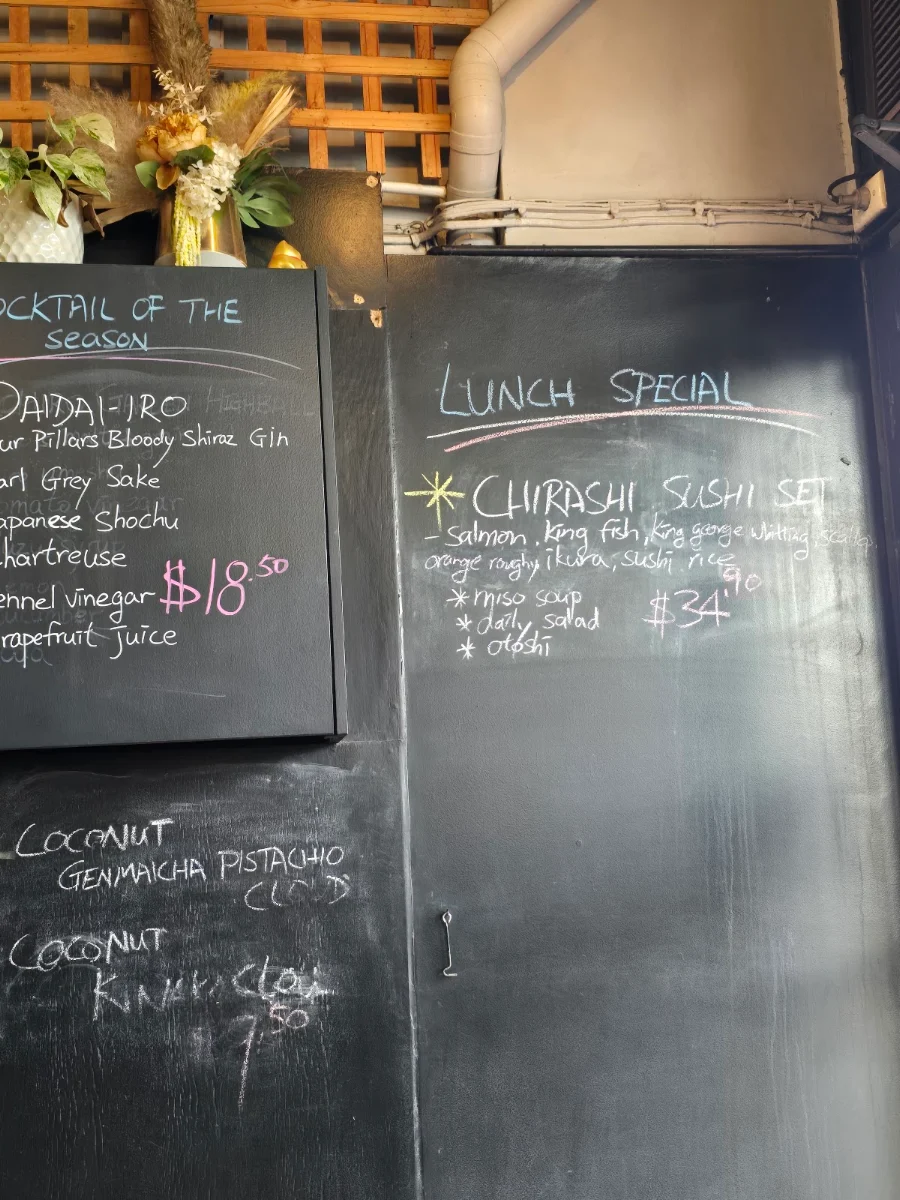 OCKTAIL OF THE
SEASON
DAIDAI-IRO
ur Pillars Bloody Shiraz Gin
arl Grey Sake
apanese Shochu
hartreuse
ennel Vinegar $18.50
rapefruit Juice
COCONUT
GENMAICHA PISTACHIO
COCONUT
7.50
LUNCH SPECIAL
CHIRASHI SUSHI SET
- Salmon, King fish, King george whitting, scallop,
orange roughy, ikura, sushi rice
* miso soup
* daily salad
* otoshi
$34.90